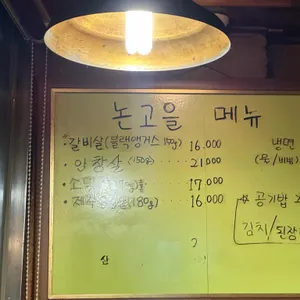 논고을 메뉴
갈비살(블랙앵거스 150g) 16,000
안창살 (150g) 21,000
17,000
(180g) 16,000
냉면
공기밥
김치/된장
2
산